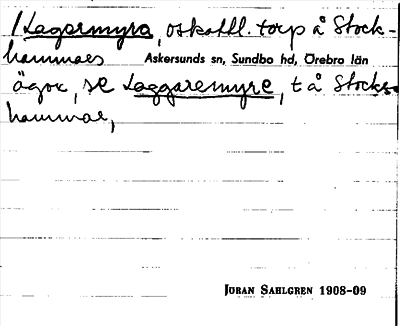 /Lagarmyra, oskattl. torp å Stock-
hammars Askersunds sn, Sundbo hd, Örebro län
ägor, se Laggaremyre, t å Stocks-
hammar,
JÖRAN SAHLGREN 1908-09